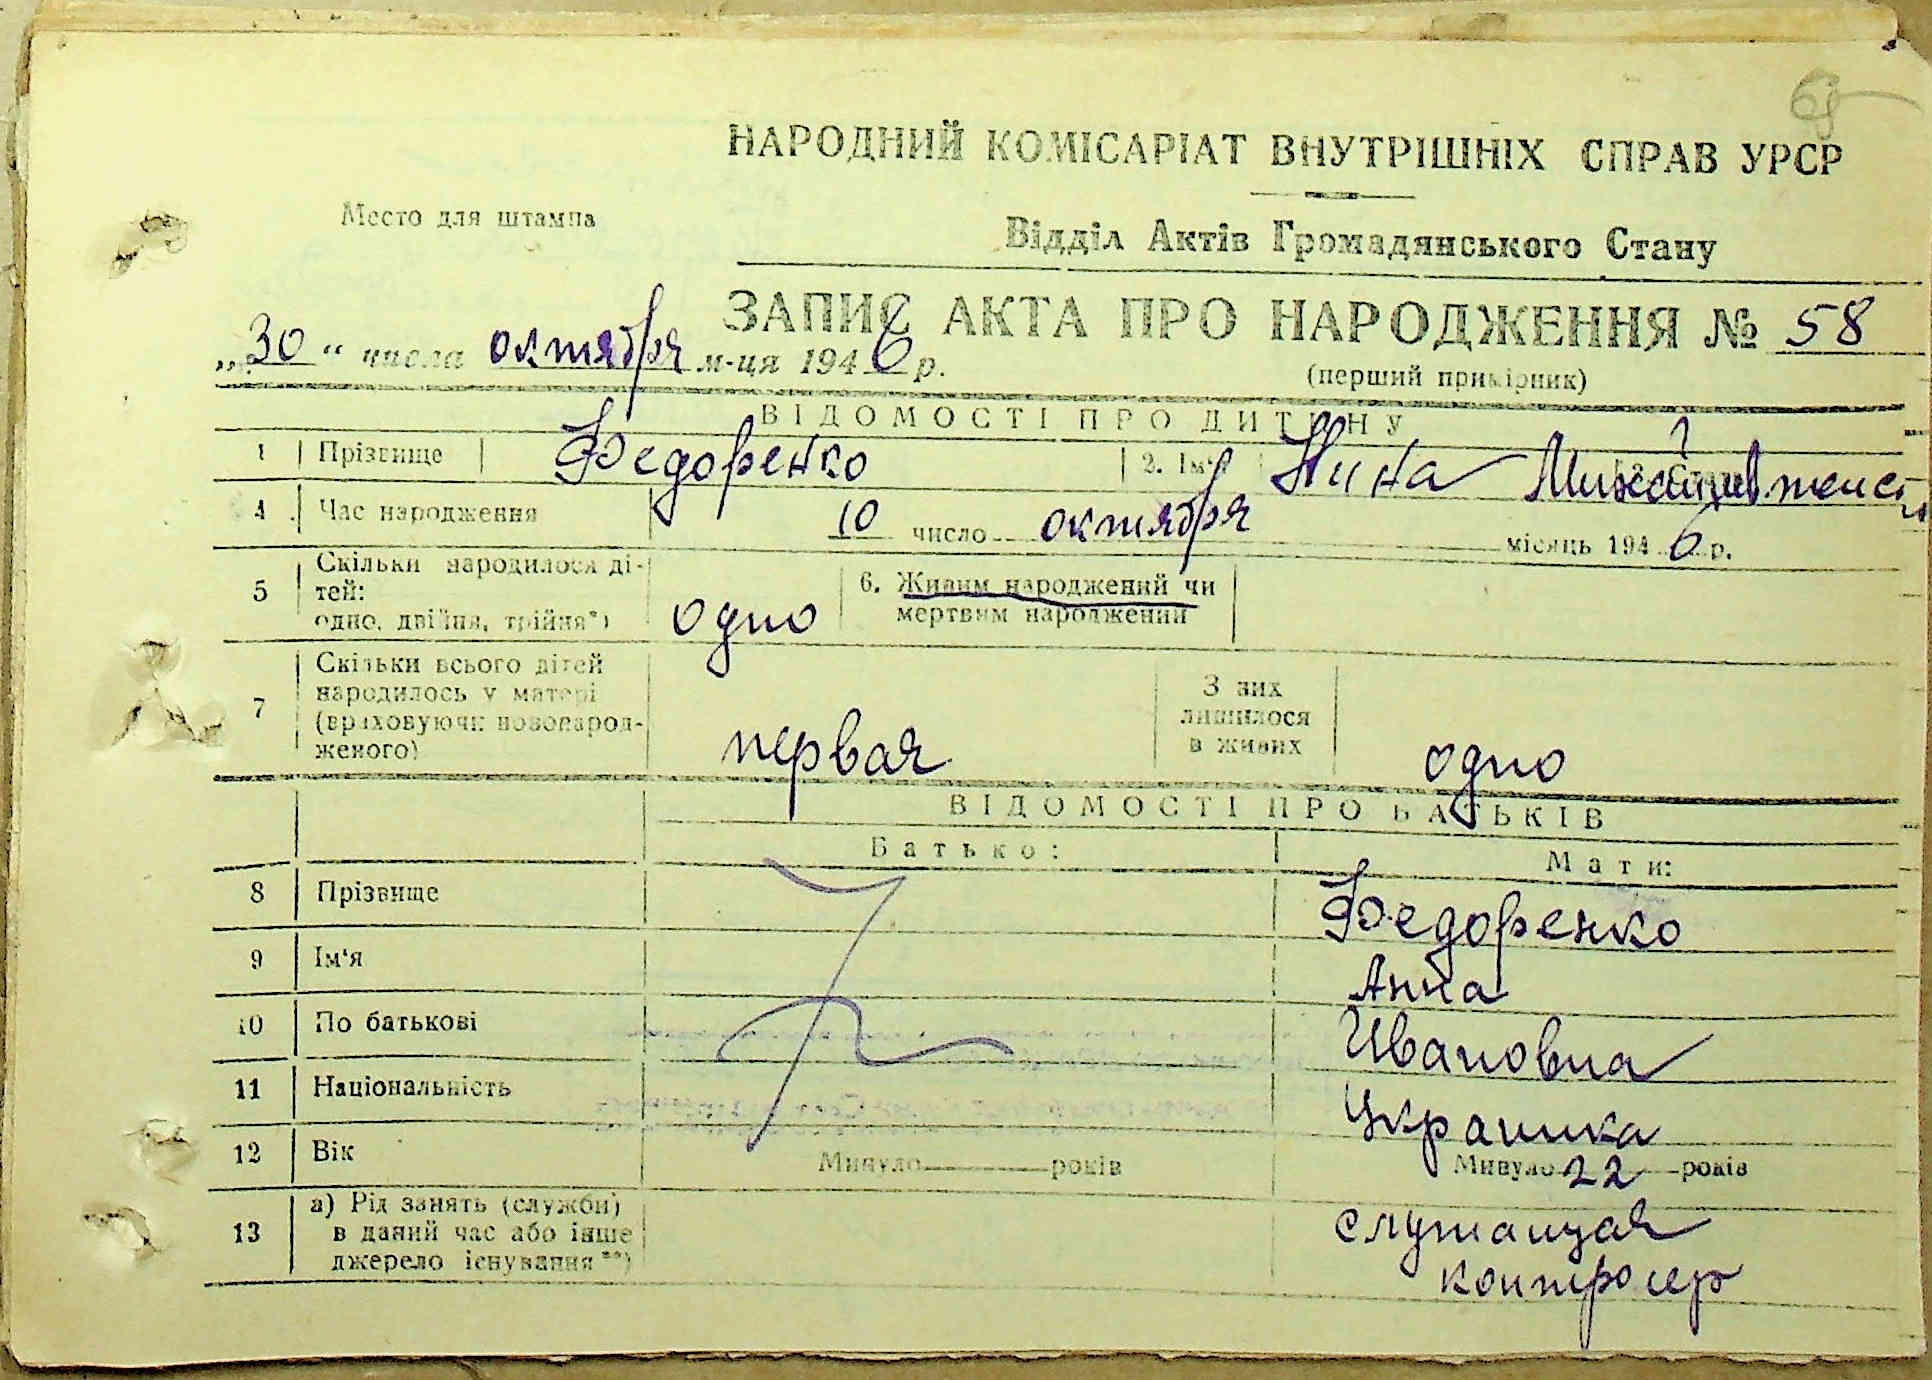 65
НАРОДНИЙ КОМІСАРІАТ ВНУТРІШНІХ СПРАВ УРСР
Место для штампа
Відділ Актів Громадянського Стану
ЗАПИС АКТА ПРО НАРОДЖЕННЯ № 58
„30“ числа октября м-ця 1946 р.
(перший примірник)
ВІДОМОСТІ ПРО ДИТИНУ
1 Прізвище Федоренко 2. Ім‘я Нина
4 Час народження 10 число октября місяць 1946 р.
5 Скільки народилося ді-
тей:
одно, двійня, трійня*) одно
6. Живим народжений чи
мертвим народжений
7 Скільки всього дітей
народилось у матері
(враховуючи новонарод-
женого) первая
З них
лишилося
в живих одно
ВІДОМОСТІ ПРО БАТЬКІВ
Батько: Мати:
8 Прізвище Федоренко
9 Ім‘я Анна
10 По батькові Ивановна
11 Національність Украинка
12 Вік Минуло років Минуло 22 років
13 а) Рід занять (служби)
в даний час або інше
джерело існування**)
служащая
контролер